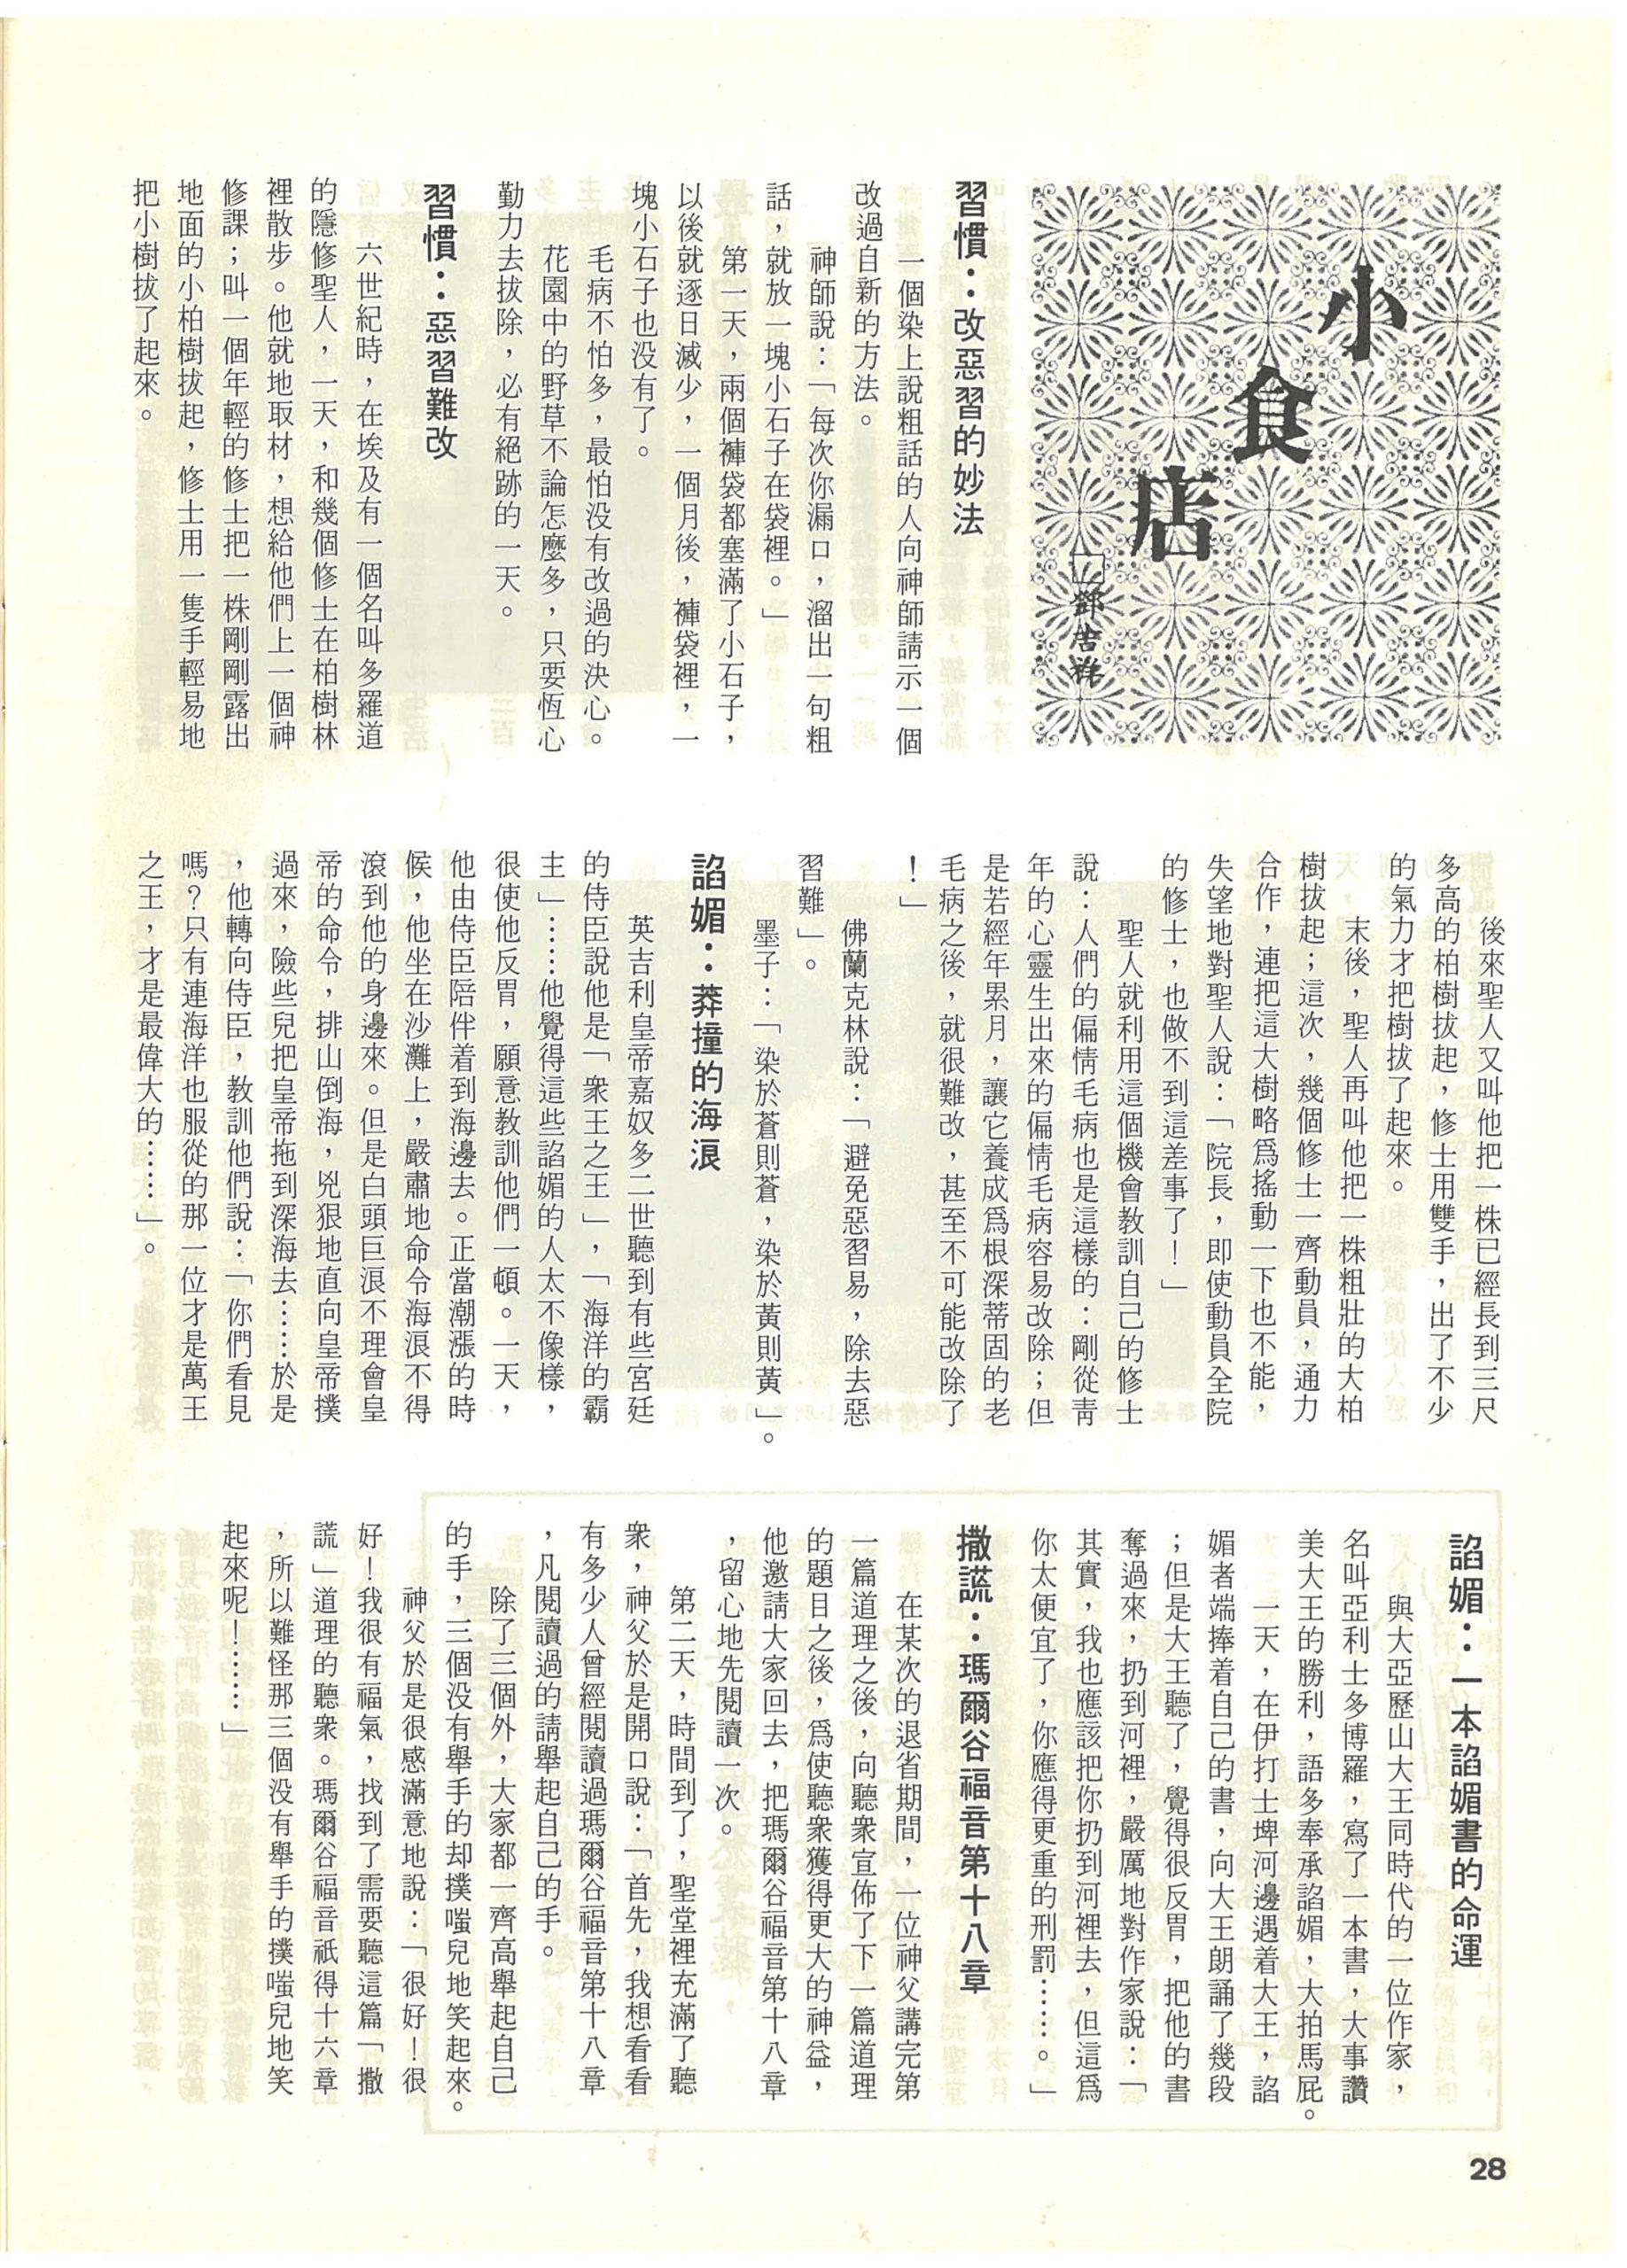 小食店
□鄧啓祥
習慣：改惡習的妙法
一個染上說粗話的人向神師請示一個
改過自新的方法。
神師說：「每次你漏口，溜出一句粗
話，就放一塊小石子在袋裡。」
第一天，兩個褲袋都塞滿了小石子，
以後就逐日減少，一個月後，褲袋裡，一
塊小石子也没有了。
毛病不怕多，最怕没有改過的決心。
花園中的野草不論怎麼多，只要恆心
勤力去拔除，必有絕跡的一天。
習慣：惡習難改
六世紀時，在埃及有一個名叫多羅道
的隱修聖人，一天，和幾個修士在柏樹林
裡散步。他就地取材，想給他們上一個神
修課；叫一個年輕的修士把一株剛剛露出
地面的小柏樹拔起，修士用一隻手輕易地
把小樹拔了起來。
後來聖人又叫他把一株已經長到三尺
多高的柏樹拔起，修士用雙手，出了不少
的氣力才把樹拔了起來。
末後，聖人再叫他把一株粗壯的大柏
樹拔起；這次，幾個修士一齊動員，通力
合作，連把這大樹略爲搖動一下也不能，
失望地對聖人說：「院長，即使動員全院
的修士，也做不到這差事了！」
聖人就利用這個機會教訓自己的修士
說：人們的偏情毛病也是這樣的：剛從靑
年的心靈生出來的偏情毛病容易改除；但
是若經年累月，讓它養成爲根深蒂固的老
毛病之後，就很難改，甚至不可能改除了
！」
佛蘭克林說：「避免惡習易，除去惡
習難」。
墨子：「染於蒼則蒼，染於黃則黃」。
諂媚：莽撞的海浪
英吉利皇帝嘉奴多二世聽到有些宮廷
的侍臣說他是「衆王之王」，「海洋的霸
主」……他覺得這些諂媚的人太不像樣，
很使他反胃，願意教訓他們一頓。一天，
他由侍臣陪伴着到海邊去。正當潮漲的時
候，他坐在沙灘上，嚴肅地命令海浪不得
滾到他的身邊來。但是白頭巨浪不理會皇
帝的命令，排山倒海，兇狠地直向皇帝撲
過來，險些兒把皇帝拖到深海去……於是
，他轉向侍臣，教訓他們說：「你們看見
嗎？只有連海洋也服從的那一位才是萬王
之王，才是最偉大的……」。
諂媚：一本諂媚書的命運
與大亞歷山大王同時代的一位作家，
名叫亞利士多博羅，寫了一本書，大事讚
美大王的勝利，語多奉承諂媚，大拍馬屁。
一天，在伊打士埤河邊遇着大王，諂
媚者端捧着自己的書，向大王朗誦了幾段
；但是大王聽了，覺得很反胃，把他的書
奪過來，扔到河裡，嚴厲地對作家說：「
其實，我也應該把你扔到河裡去，但這爲
你太便宜了，你應得更重的刑罰……。」
撒謊：瑪爾谷福音第十八章
在某次的退省期間，一位神父講完第
一篇道理之後，向聽衆宣佈了下一篇道理
的題目之後，爲使聽衆獲得更大的神益，
他邀請大家回去，把瑪爾谷福音第十八章
，留心地先閱讀一次。
第二天，時間到了，聖堂裡充滿了聽
衆，神父於是開口說：「首先，我想看看
有多少人曾經閱讀過瑪爾谷福音第十八章
，凡閱讀過的請舉起自己的手。
除了三個外，大家都一齊高舉起自己
的手，三個没有舉手的却撲嗤兒地笑起來。
神父於是很感滿意地說：「很好！很
好！我很有福氣，找到了需要聽這篇「撒
謊」道理的聽衆。瑪爾谷福音祇得十六章
，所以難怪那三個没有舉手的撲嗤兒地笑
起來呢！……」
28